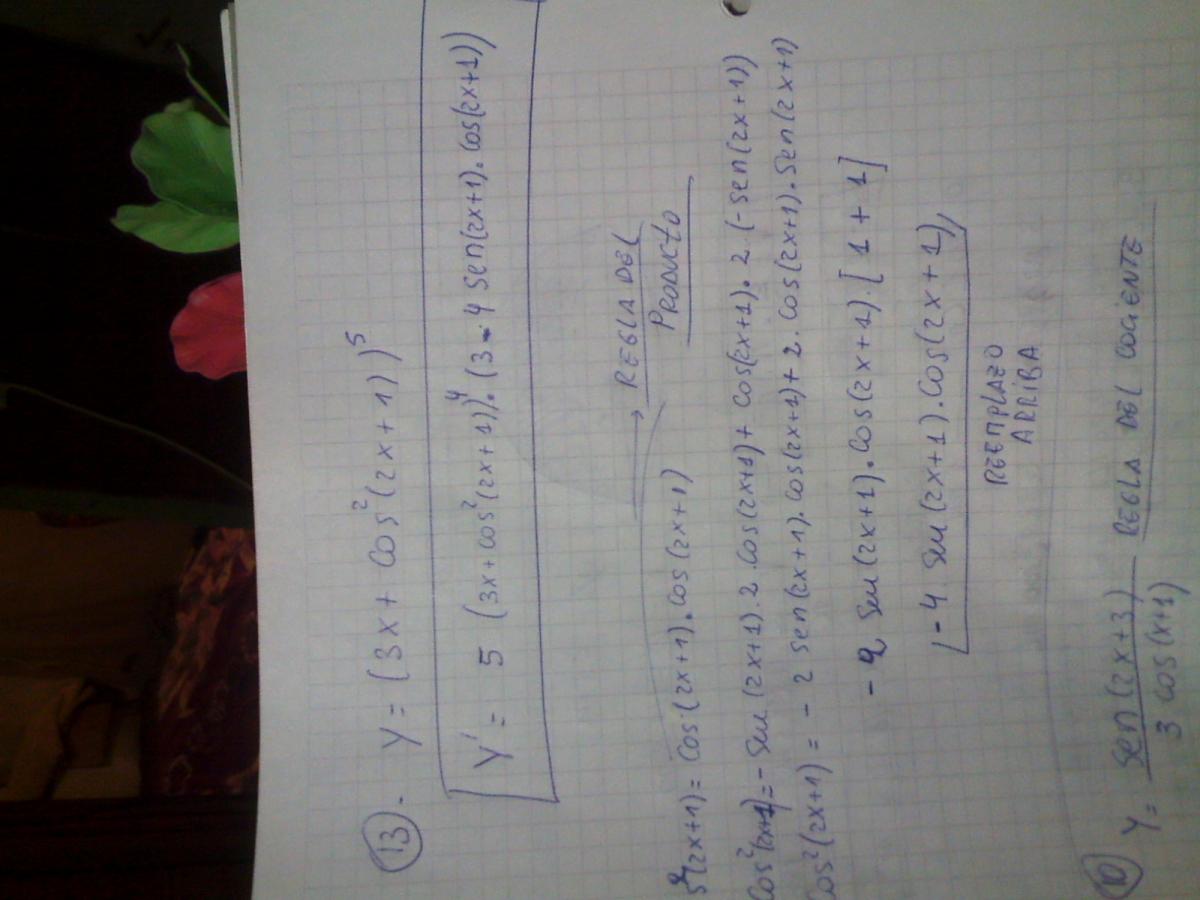 13. y = (3x + cos²(2x+1))⁵
y' = 5 (3x+cos²(2x+1))⁴.(3-4 sen(2x+1).cos(2x+1))
→ REGLA DEL
PRODUCTO
s²(2x+1)= cos(2x+1).cos(2x+1)
cos²(2x+1)=-sen(2x+1).2.cos(2x+1)+ cos(2x+1).2.(-sen(2x+1))
cos²(2x+1) = - 2 sen(2x+1).cos(2x+1)+2.cos(2x+1).sen(2x+1)
-2 sen(2x+1).cos(2x+1).[1+1]
-4 sen(2x+1).cos(2x+1)
REEMPLAZO
ARRIBA
10 y= sen(2x+3) / 3 cos(x+1) REGLA DEL COCIENTE